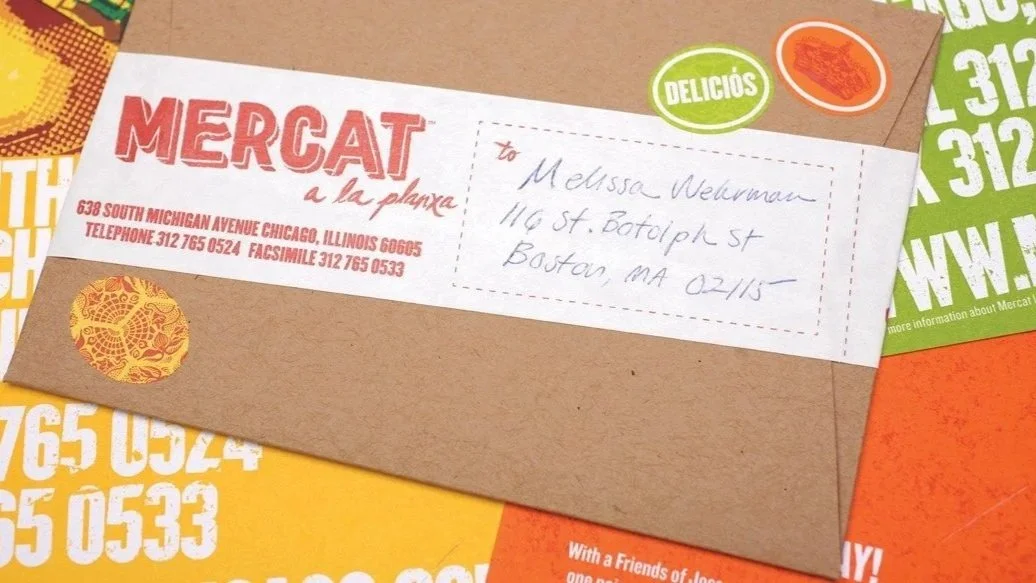 MERCAT™
a la planxa
638 SOUTH MICHIGAN AVENUE CHICAGO, ILLINOIS 60605
TELEPHONE 312 765 0524 FACSIMILE 312 765 0533
to
Melissa Wehrman
116 St. Botolph St
Boston, MA 02115
DELICIÓS
AGO,
L 312
312
WW.
more information about Mercat
TH
CH
765 0524
65 0533
With a Friends of
AY!